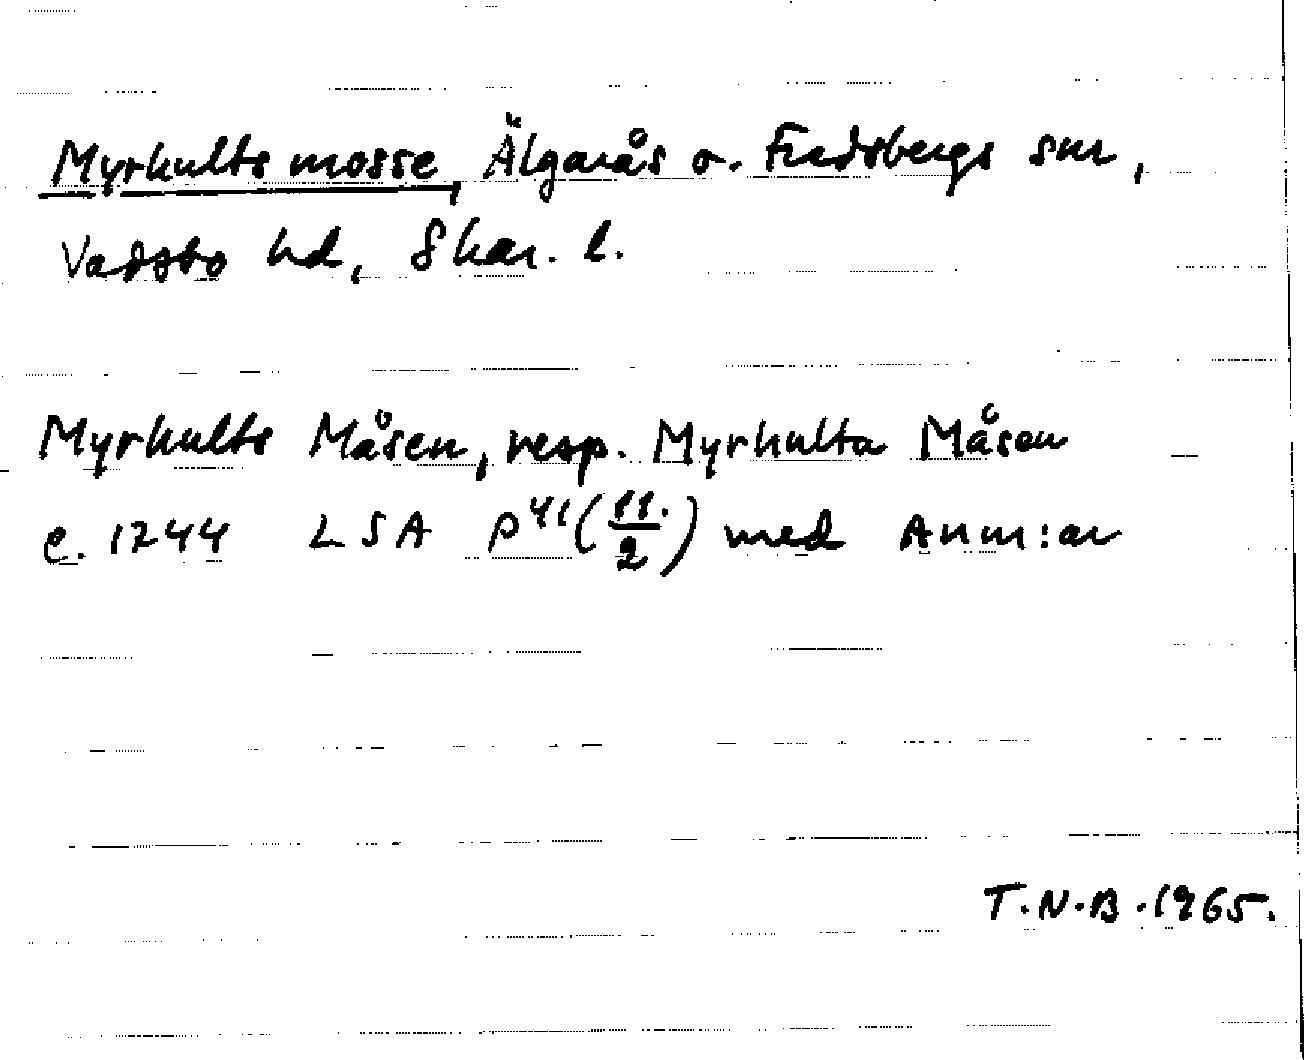 Myrhults mosse, Älgarås o. Fredsbergs snr,
Vadsbo hd, Skar. l.
Myrhults Måsen, resp. Myrhulta Måsen
c. 1244 LSA P⁴¹(11./2) med Anm:ar
T.N.B. 1965.